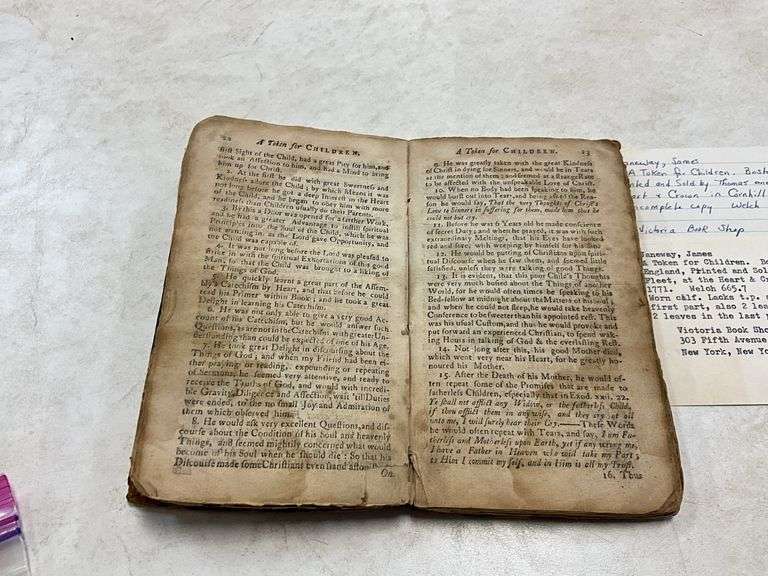 22
A Token for CHILDREN.
firſt Sight of the Child, had a great Pity for him, and
took an Affection to him, and had a Mind to bring
him up for Chriſt.
2. At the firſt he did with great Sweetneſs and
Kindneſs allure the Child; by which Means it was
not long before he got a deep Intereſt in the Heart
of the Child, and he began to obey him with more
readineſs than Children uſually do their Parents.
3. By this a Door was opened for a farther Work,
and he had a greater Advantage to inſtill ſpiritual
Principles into the Soul of the Child, which he was
not wanting in, as the Lord gave Opportunity, and
the Child was capable of.
4. It was not long before the Lord was pleaſed to
ſtrike in with the ſpiritual Exhortations of this good
Man, ſo that the Child was brought to a liking of
the Things of God.
5. He quickly learnt a great part of the Aſſem-
bly's Catechiſm by Heart, and that before he could
read his Primer within Book; and he took a great
Delight in learning his Catechiſm.
6. He was not only able to give a very good Ac-
count of his Catechiſm, but he would anſwer ſuch
Queſtions, as are not in the Catechiſm, with greater Un-
derſtanding than could be expected of one of his Age.
7. He took great Delight in diſcourſing about the
Things of God; and when my Friend had been ei-
ther praying or reading, expounding or repeating
of Sermons, he ſeemed very attentive, and ready to
receive the Truths of God, and would with incredi-
ble Gravity, Diligence and Affection, wait 'till Duties
were ended, to the no ſmall Joy and Admiration of
them which obſerved him.
8. He would ask very excellent Queſtions, and diſ-
courſe about the Condition of his Soul and heavenly
Things, and ſeemed mightily concerned what would
become of his Soul when he ſhould die: So that his
Diſcourſe made ſome Chriſtians even ſtand
On
A Token for CHILDREN.
23
9. He was greatly taken with the great Kindneſs
of Chriſt in dying for Sinners, and would be in Tears
at the mention of them; and ſeemed at a ſtrange Rate
to be affected with the unſpeakable Love of Chriſt.
10. When no Body had been ſpeaking to him, he
would burſt out into Tears, and being aſked the Rea-
ſon he would ſay, That the very Thoughts of Chriſt's
Love to Sinners in ſuffering for them, made him that he
could not but cry.
11. Before he was 6 Years old he made conſcience
of ſecret Duty; and when he prayed, it was with ſuch
extraordinary Meltings, that his Eyes have looked
red and ſore with weeping by himſelf for his Sins.
12. He would be putting of Chriſtians upon ſpiritual
Diſcourſe when he ſaw them, and ſeemed little
ſatisfied, unleſs they were talking of good Things.
13. It is evident, that this poor Child's Thoughts
were very much buſied about the Things of another
World, for he would often times be ſpeaking to his
Bed-fellow at midnight about the Matters of his Soul;
and when he could not ſleep, he would take heavenly
Conference to be ſweeter than his appointed reſt. This
was his uſual Cuſtom, and thus he would provoke and
put forward an experienced Chriſtian, to ſpend wak-
ing Hours in talking of God & the everlaſting Reſt.
14. Not long after this, his good Mother died,
which went very near his Heart, for he greatly ho-
noured his Mother.
15. After the Death of his Mother, he would of-
ten repeat ſome of the Promiſes that are made to
fatherleſs Children, eſpecially that in Exod. xxii. 22,
Ye ſhall not afflict any Widow, or the fatherleſs Child,
if thou afflict them in any wiſe, and they cry at all
unto me, I will ſurely hear their Cry.——Theſe Words
he would often repeat with Tears, and ſay, I am Fa-
therleſs and Motherleſs upon Earth, yet if any wrong me,
I have a Father in Heaven who will take my Part;
to Him I commit my ſelf, and in Him is all my Truſt.
16. Thus
aneway, James
A Token for Children. Bost
ted and Sold by Thomas
art & Crown in Cornhill
ncomplete copy Welch
Victoria Book Shop
aneway, James
Token for Children. Bo
England, Printed and Sol
Fleet, at the Heart & Cr
1771. Welch 665.7
Worn calf. Lacks t.p. a
first part, also 2 lea
2 leaves in the last p
Victoria Book Sho
303 Fifth Avenue
New York, New Yo